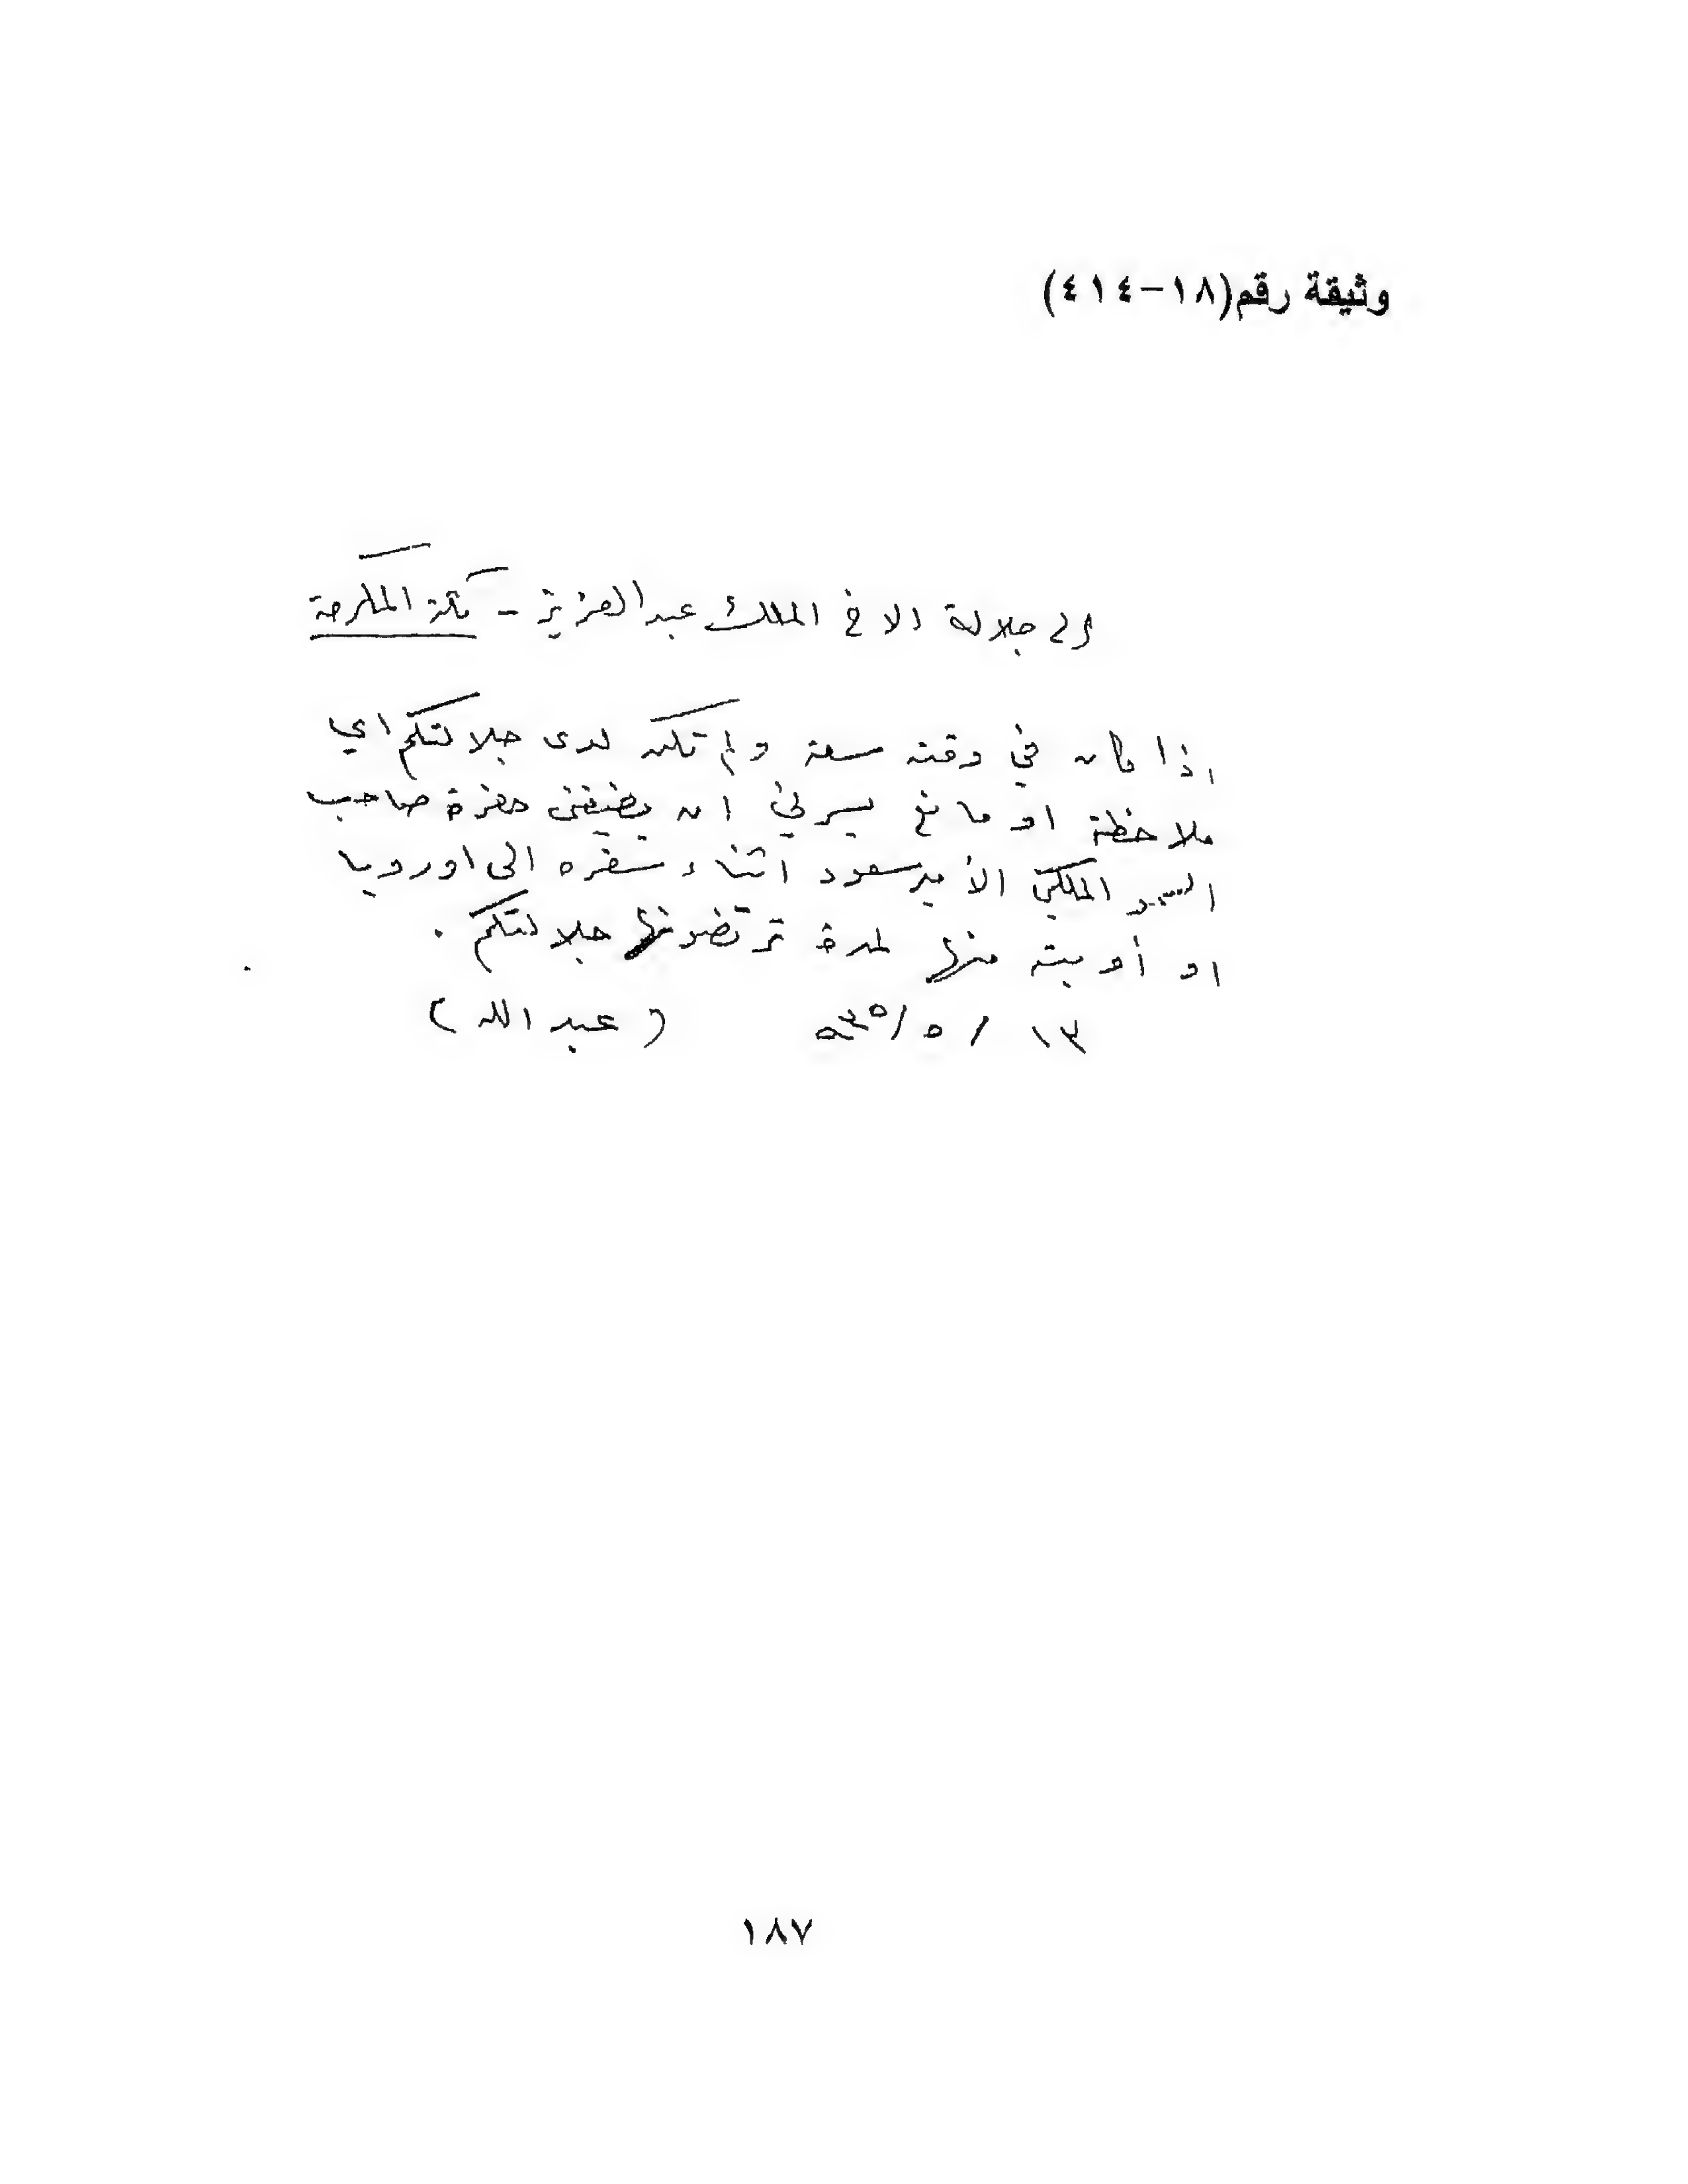 وثيقة رقم(١٨-٤١٤)
الى جلالة الاخ الملك عبدالعزيز - مكة المكرمة
اذا كان في وقته سعة ولم تكن لدى جلالتكم اي
ملاحظة او مانع يسرني ان يضيفني حضرة صاحب
السمو الملكي الأمير سعود اثناء سفره الى اوروبا
او أوبته منها لمدة ترتضونها جلالتكم .
١٣ / ٥ / ٣٥ (عبد الله)
١٨٧